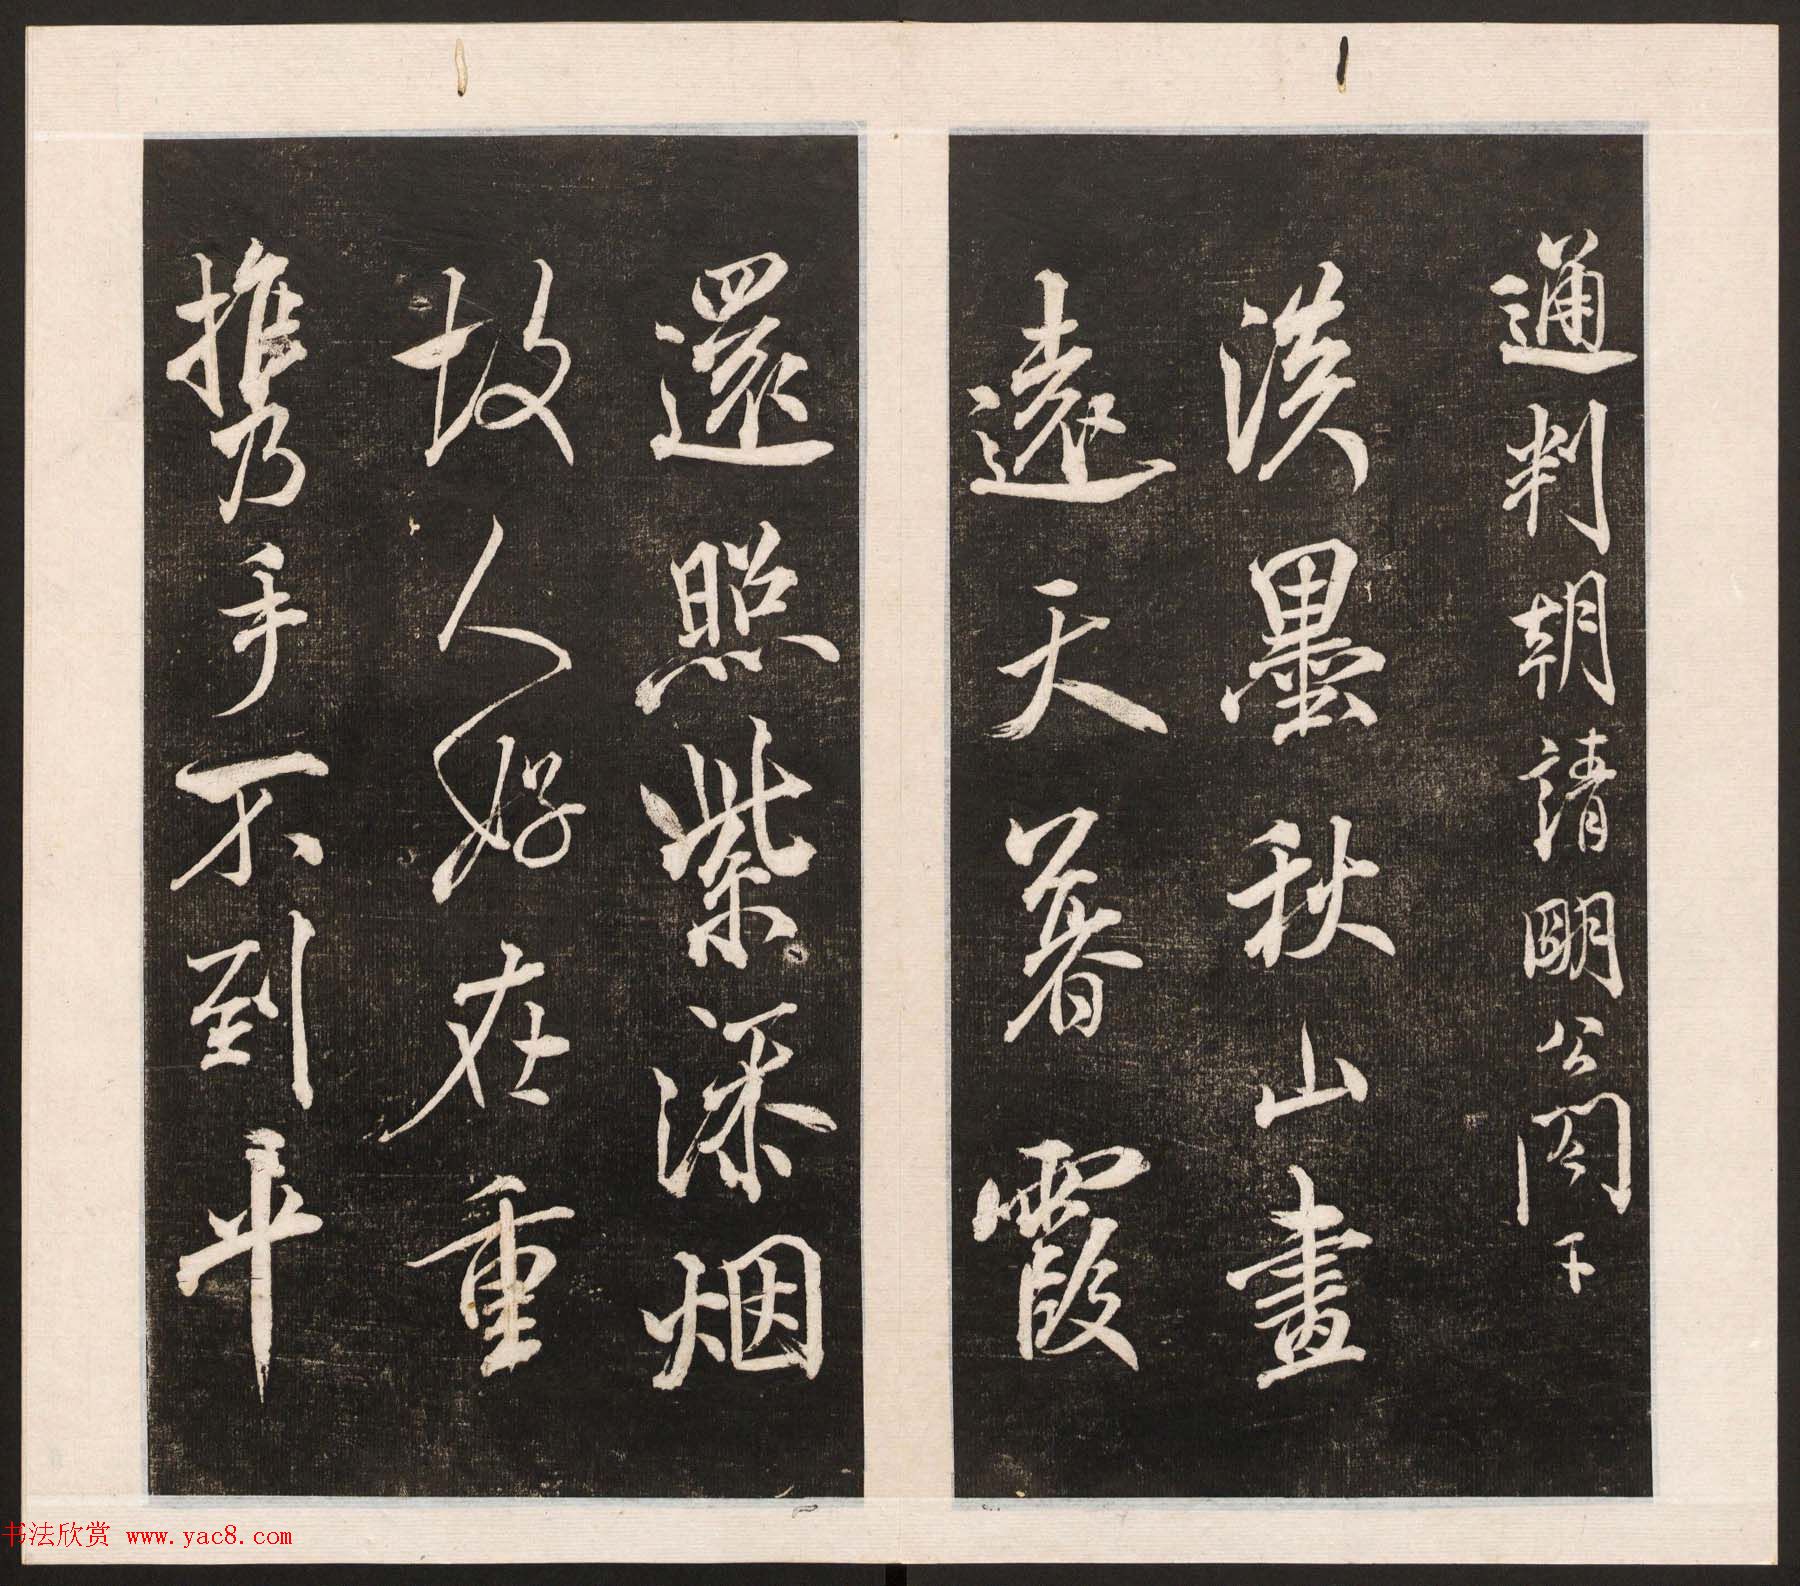 通判朝請明公閤下
淡墨秋山畫
遠天暮霞
還照紫添烟
故人好在重
攜手不到平
书法欣赏 www.yac8.com